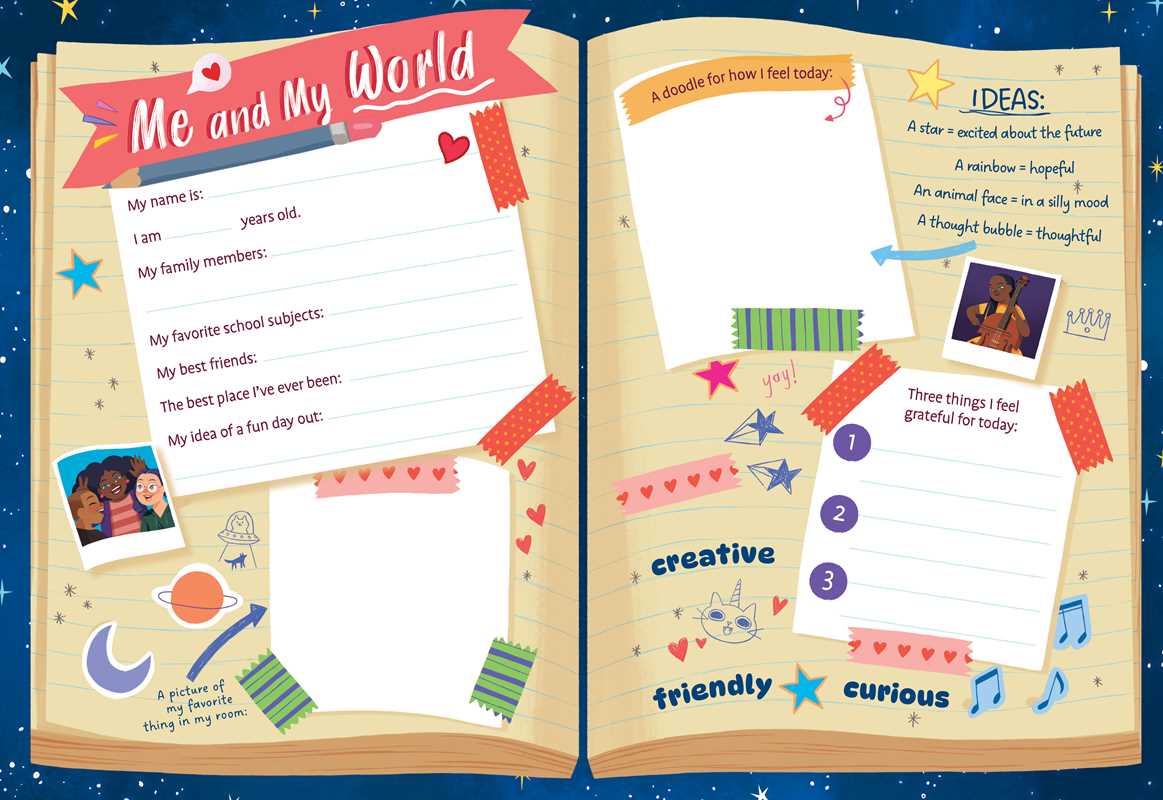 Me and My World
My name is:
I am years old.
My family members:
My favorite school subjects:
My best friends:
The best place I've ever been:
My idea of a fun day out:
A picture of
my favorite
thing in my room:
A doodle for how I feel today:
IDEAS:
A star = excited about the future
A rainbow = hopeful
An animal face = in a silly mood
A thought bubble = thoughtful
yay!
Three things I feel
grateful for today:
1
2
3
creative
friendly
curious